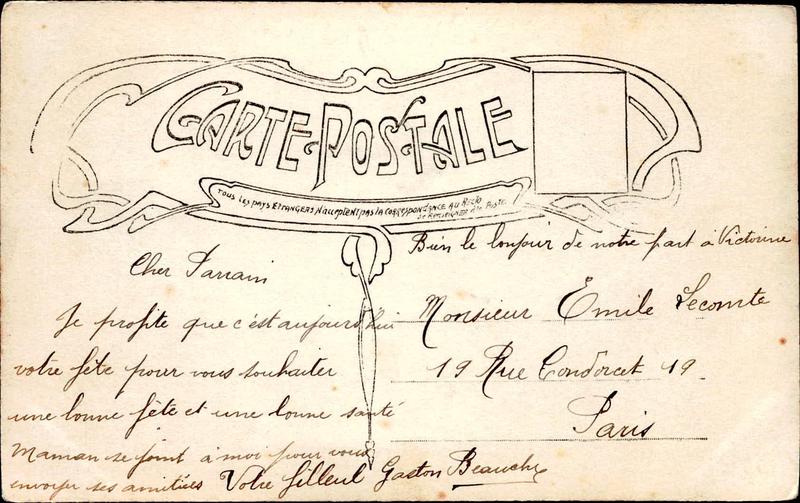 CARTE POSTALE
TOUS LES PAYS ETRANGERS N'ACCEPTENT PAS LA CORRESPONDANCE AU RECTO
Se RENSEIGNER A la POSTE
Bien le bonjour de notre part à Victorine
Cher Parrain
Je profite que c'est aujourd'hui
votre fête pour vous souhaiter
une bonne fête et une bonne santé
Maman se joint à moi pour vous
envoyer ses amitiées Votre filleul Gaston Beauche
Monsieur Emile Lecomte
19 Rue Condorcet 19
Paris